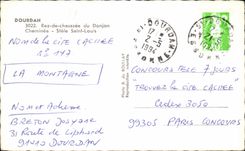 DOURDAN
3022. Rez-de-chaussée du Donjon
Cheminée - Stèle Saint-Louis
NOM de la CITE CACHEE
N° 117
LA MONTAGNE
Nom et Adresse
BRETON Josyane
31 Route de
91410 DOURDAN
DOURDAN
17
2-5
1994
CONCOURS TELE 7 JOURS
TROUVEZ la CITE CACHEE
Cedex 3050
99305 PARIS CONCOURS